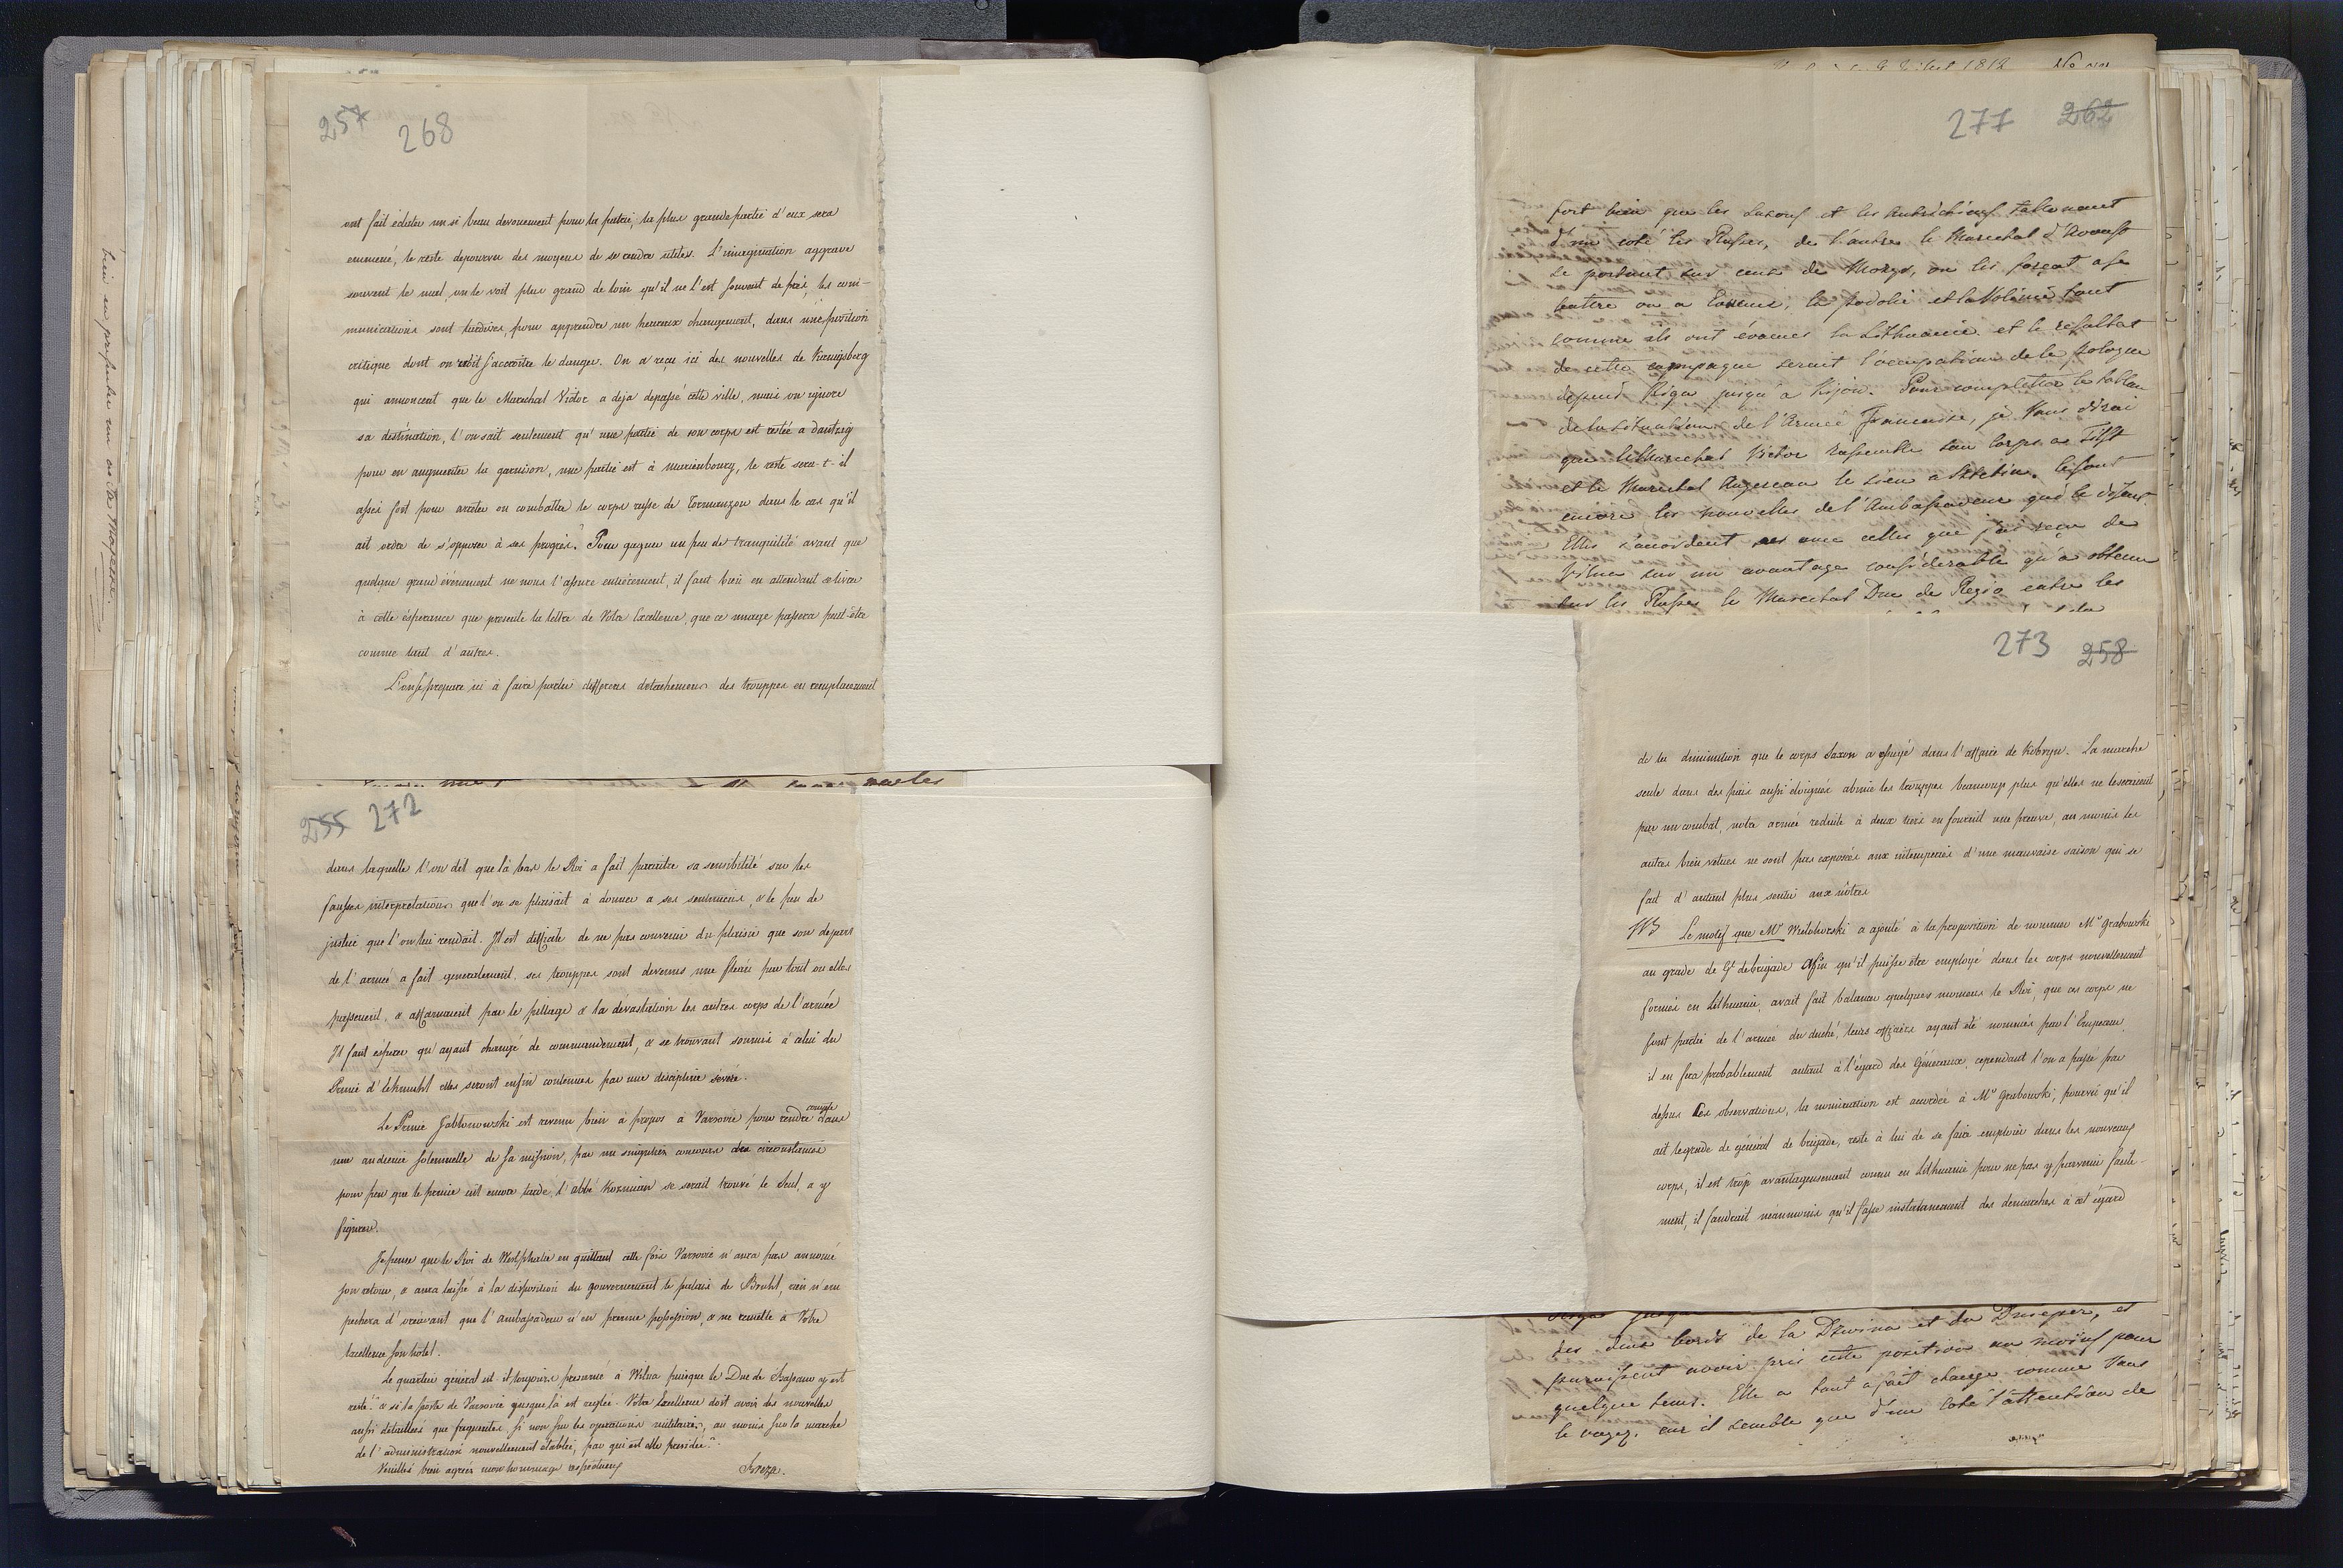 257 268
ont fait éclater un si beau devouement pour la patrie, la plus grande partie d'eux sera
emmené, le reste depourvu des moyens de se rendre utiles. L'imagination aggrave
souvent le mal, on le voit plus grand de loin qu'il ne l'est souvent de près, les com-
munications sont tardives, pour apprendre un heureux changement, dans une position
critique dont on voit s'accroitre le danger. On a reçu ici des nouvelles de Kœnigsberg
qui annoncent que le Marechal Victor a deja depassé cette ville, mais on ignore
sa destination, l'on sait seulement qu'une partie de son corps est restée a dantzig
pour en augmenter la garnison, une partie est à marienbourg, le reste sera-t-il
assés fort pour arreter ou combattre le corps russe de Tormanzow dans le cas qu'il
ait ordre de s'opposer à ses progrès? Pour gagner un peu de tranquilité avant que
quelque grand évenement ne nous l'assure entièrement, il faut bien en attendant se livrer
à cette ésperance que presente la lettre de Votre Excellence, que ce nuage passera peut-être
comme tant d'autres.
L'on se prepare ici à faire partir differens detachemens des trouppes en remplacement
255 272
dans laquelle l'on dit que là bas le Roi a fait paraitre sa sensibilité sur les
fausses interpretations que l'on se plaisait à donner a ses sentimens, & le peu de
justice que l'on lui rendait. Il est difficile de ne pas convenir du plaisir que son depart
de l'armée a fait generalement, ses trouppes sont devenus une fleau par tout ou elles
passoient, & affamaient par le pillage & la dévastation les autres corps de l'armée
Il faut éspérer qu'ayant changé de commandement, & se trouvant soumis à celui du
Prince d'Ekmuhl elles seront enfin contenues par une discipline sevère.
Le Prince Jablonowski est revenu bien à propos à Varsovie pour rendre compte dans
une audience solemnelle de sa mission, par un singulier concours des circonstances
pour peu que le prince eut encore tardé, l'abbé Kozmian se serait trouvé le seul, a y
figurer.
Je pense que le Roi de Westphalie en quittant cette fois Varsovie n'aura pas annoncé
son retour, & aura laissé à la disposition du gouvernement le palais de Bruhl, rien n'em
pechera d'orénavant que l'ambassadeur n'en prenne possession, & ne remette à Votre
Excellence son hotel.
Le quartier général est-il toujours presumé à Wilna puisque le Duc de Bassano y est
resté? & si la poste de Varsovie jusques là est reglée. Votre Excellence doit avoir des nouvelles
aussi détaillées que frequentes, si non sur les operations militaires, au moins sur la marche
de l'administration nouvellement établie, par qui est elle presidée?
Veuillés bien agréer mon hommage respectueux
Breza.
277 262
fort bien que les Saxons et les Autrichiens talonnant
d'un coté les Russes, de l'autre le Marechal d'Avoust
se portant sur ceux de Mozyr, on les forçat a se
battre ou a évacuer, la podolie et la Volinie tout
comme ils ont évacués la Lithuanie et le resultat
de cette campagne serait l'occupation de la Pologne
depuis Riga jusqu'a Kijow. Pour completter le tableau
de la situation de l'Armée Francaise, je Vous dirai
que le Marechal Victor rassemble son Corps a Tilsit
et le Marechal Augereau le sien a Stetin. Ce sont
encore les nouvelles de l'Ambassadeur
Elles s'accordent avec celles que j'ai reçu de
Vilna sur un avantage considerable qu'a obtenu
sur les Russes le Marechal Duc de Regio entre les
273 258
de la diminution que le corps Saxon a essuyé dans l'affaire de Kobryn. La marche
seule dans des païs aussi éloignés abime les trouppes beaucoup plus qu'elles ne le seraient
par un combat, notre armée reduite à deux tiers en fournit une preuve, au moins les
autres bien vetues ne sont pas exposées aux intemperies d'une mauvaise saison qui se
fait d'autant plus sentir aux nôtres
NB Le motif que Mr Wielohorski a ajouté à la proposition de nommer Mr Grabowski
au grade de Gl de brigade afin qu'il puisse être employé dans les corps nouvellement
formés en Lithuanie, avait fait balancer quelques momens le Roi, que ces corps ne
font partie de l'armée du duché, leurs officiers ayant été nommés par l'Empereur,
il en sera probablement autant à l'égard des Généraux, cependant l'on a passé par
dessus ces observations, la nomination est accordée à Mr Grabowski, pourvu qu'il
ait le grade de général de brigade, reste à lui de se faire emploïer dans les nouveaux
corps, il est trop avantageusement connu en Lithuanie pour ne pas y parvenir facile-
ment, il faudrait neanmoins qu'il fasse instatanement des demarches à cet égard
les deux bords de la Dzwina et du Dnieper, et
paraissent avoir pris cette position au moins pour
quelque tems. Elle a tout a fait changé comme Vous
le voyez, car il semble que d'un coté l'attention de